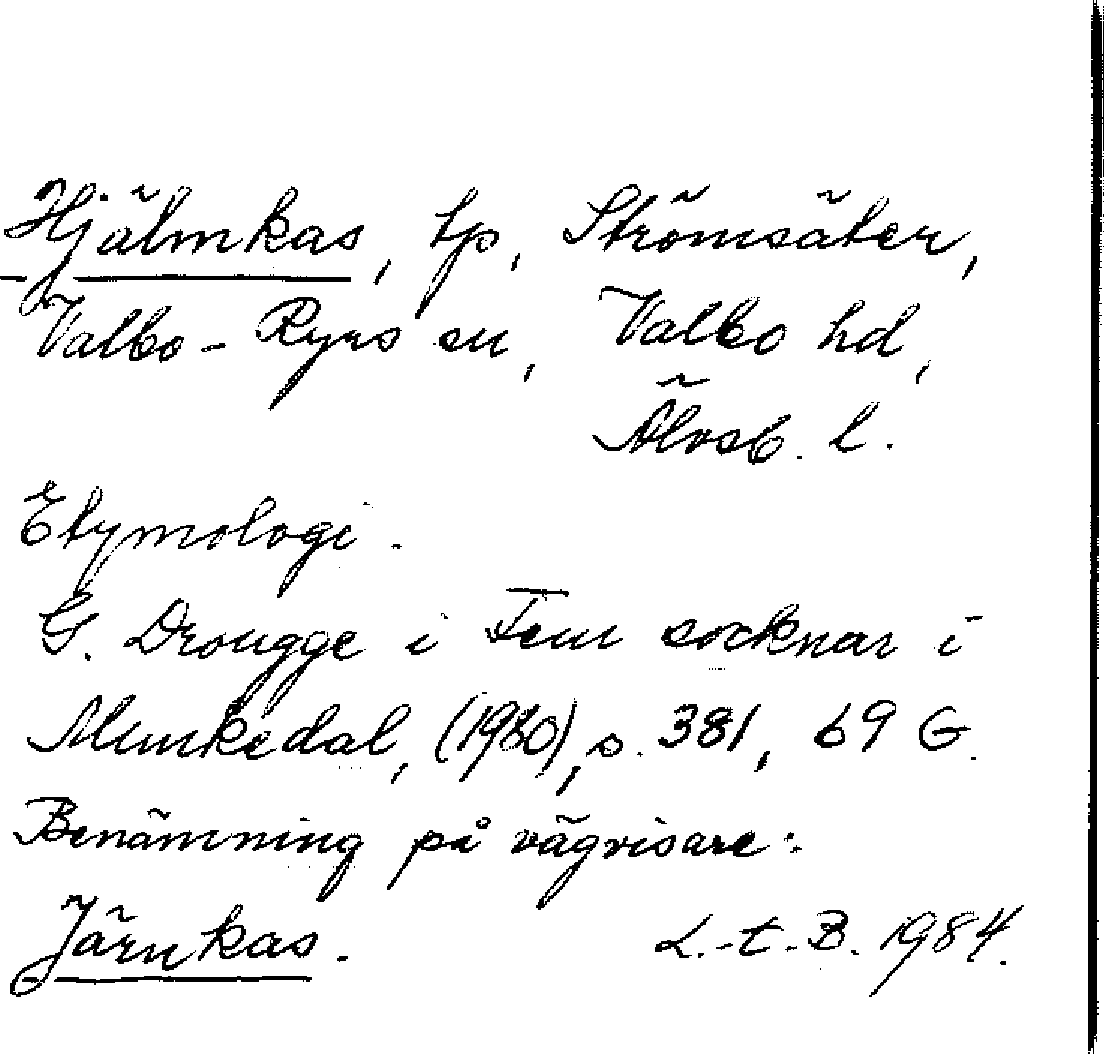 Hjälmkas, tp, Strömsäter,
Valbo-Ryrs sn, Valbo hd,
Älvsb. l.
Etymologi.
G. Drougge i Fem socknar i
Munkedal, (1980), s. 381, 69 G.
Benämning på vägvisare:
Järnkas. L.-t.-B. 1984.